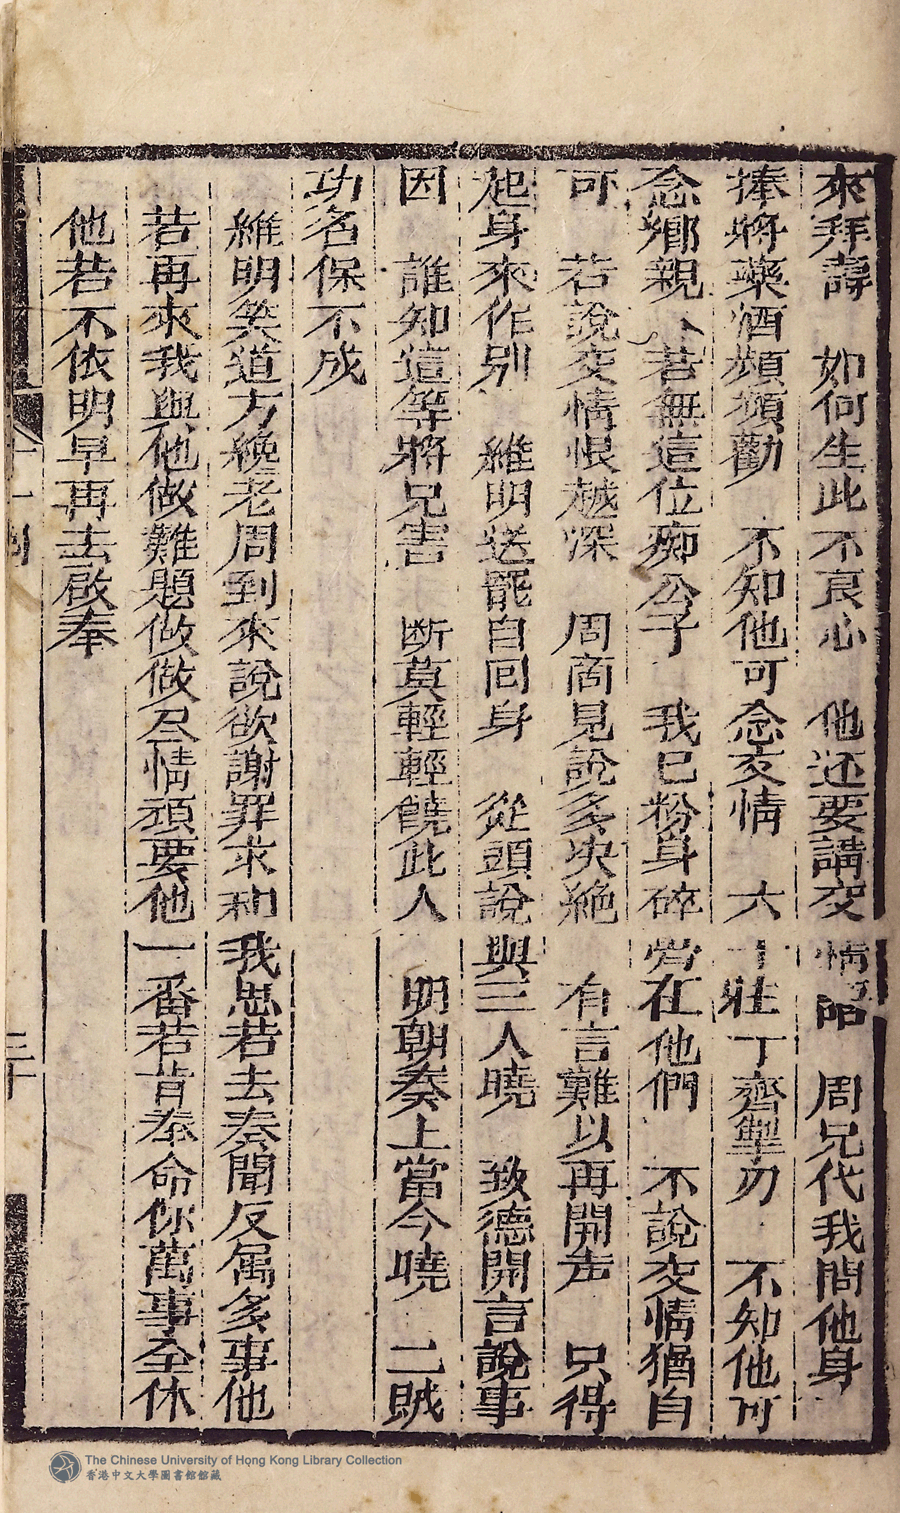 來拜壽　如何生此不良心　他还要講交情面　周兄代我問他身
捧將藥酒頻頻勸　不知他可念交情　六十莊丁齊掣刃　不知他可
念鄉親　若無這位痴公子　我已粉身碎骨在他們　不說交情猶自
可　若說交情恨越深　周商見說多决絶　有言難以再開声　只得
起身來作别　維明送罷自回身　從頭說與三人曉　致德開言說事
因　誰知這等將兄害　断莫輕輕饒此人　明朝奏上當今曉　二賊
功名保不成
維明笑道方纔老周到來說欲謝罪求和我思若去奏聞反属多事他
若再來我與他做難題做做尽情頑要他一番若肯奉命你萬事全休
他若不依明早再去啟奉
十一回
三十
The Chinese University of Hong Kong Library Collection
香港中文大學圖書館館藏